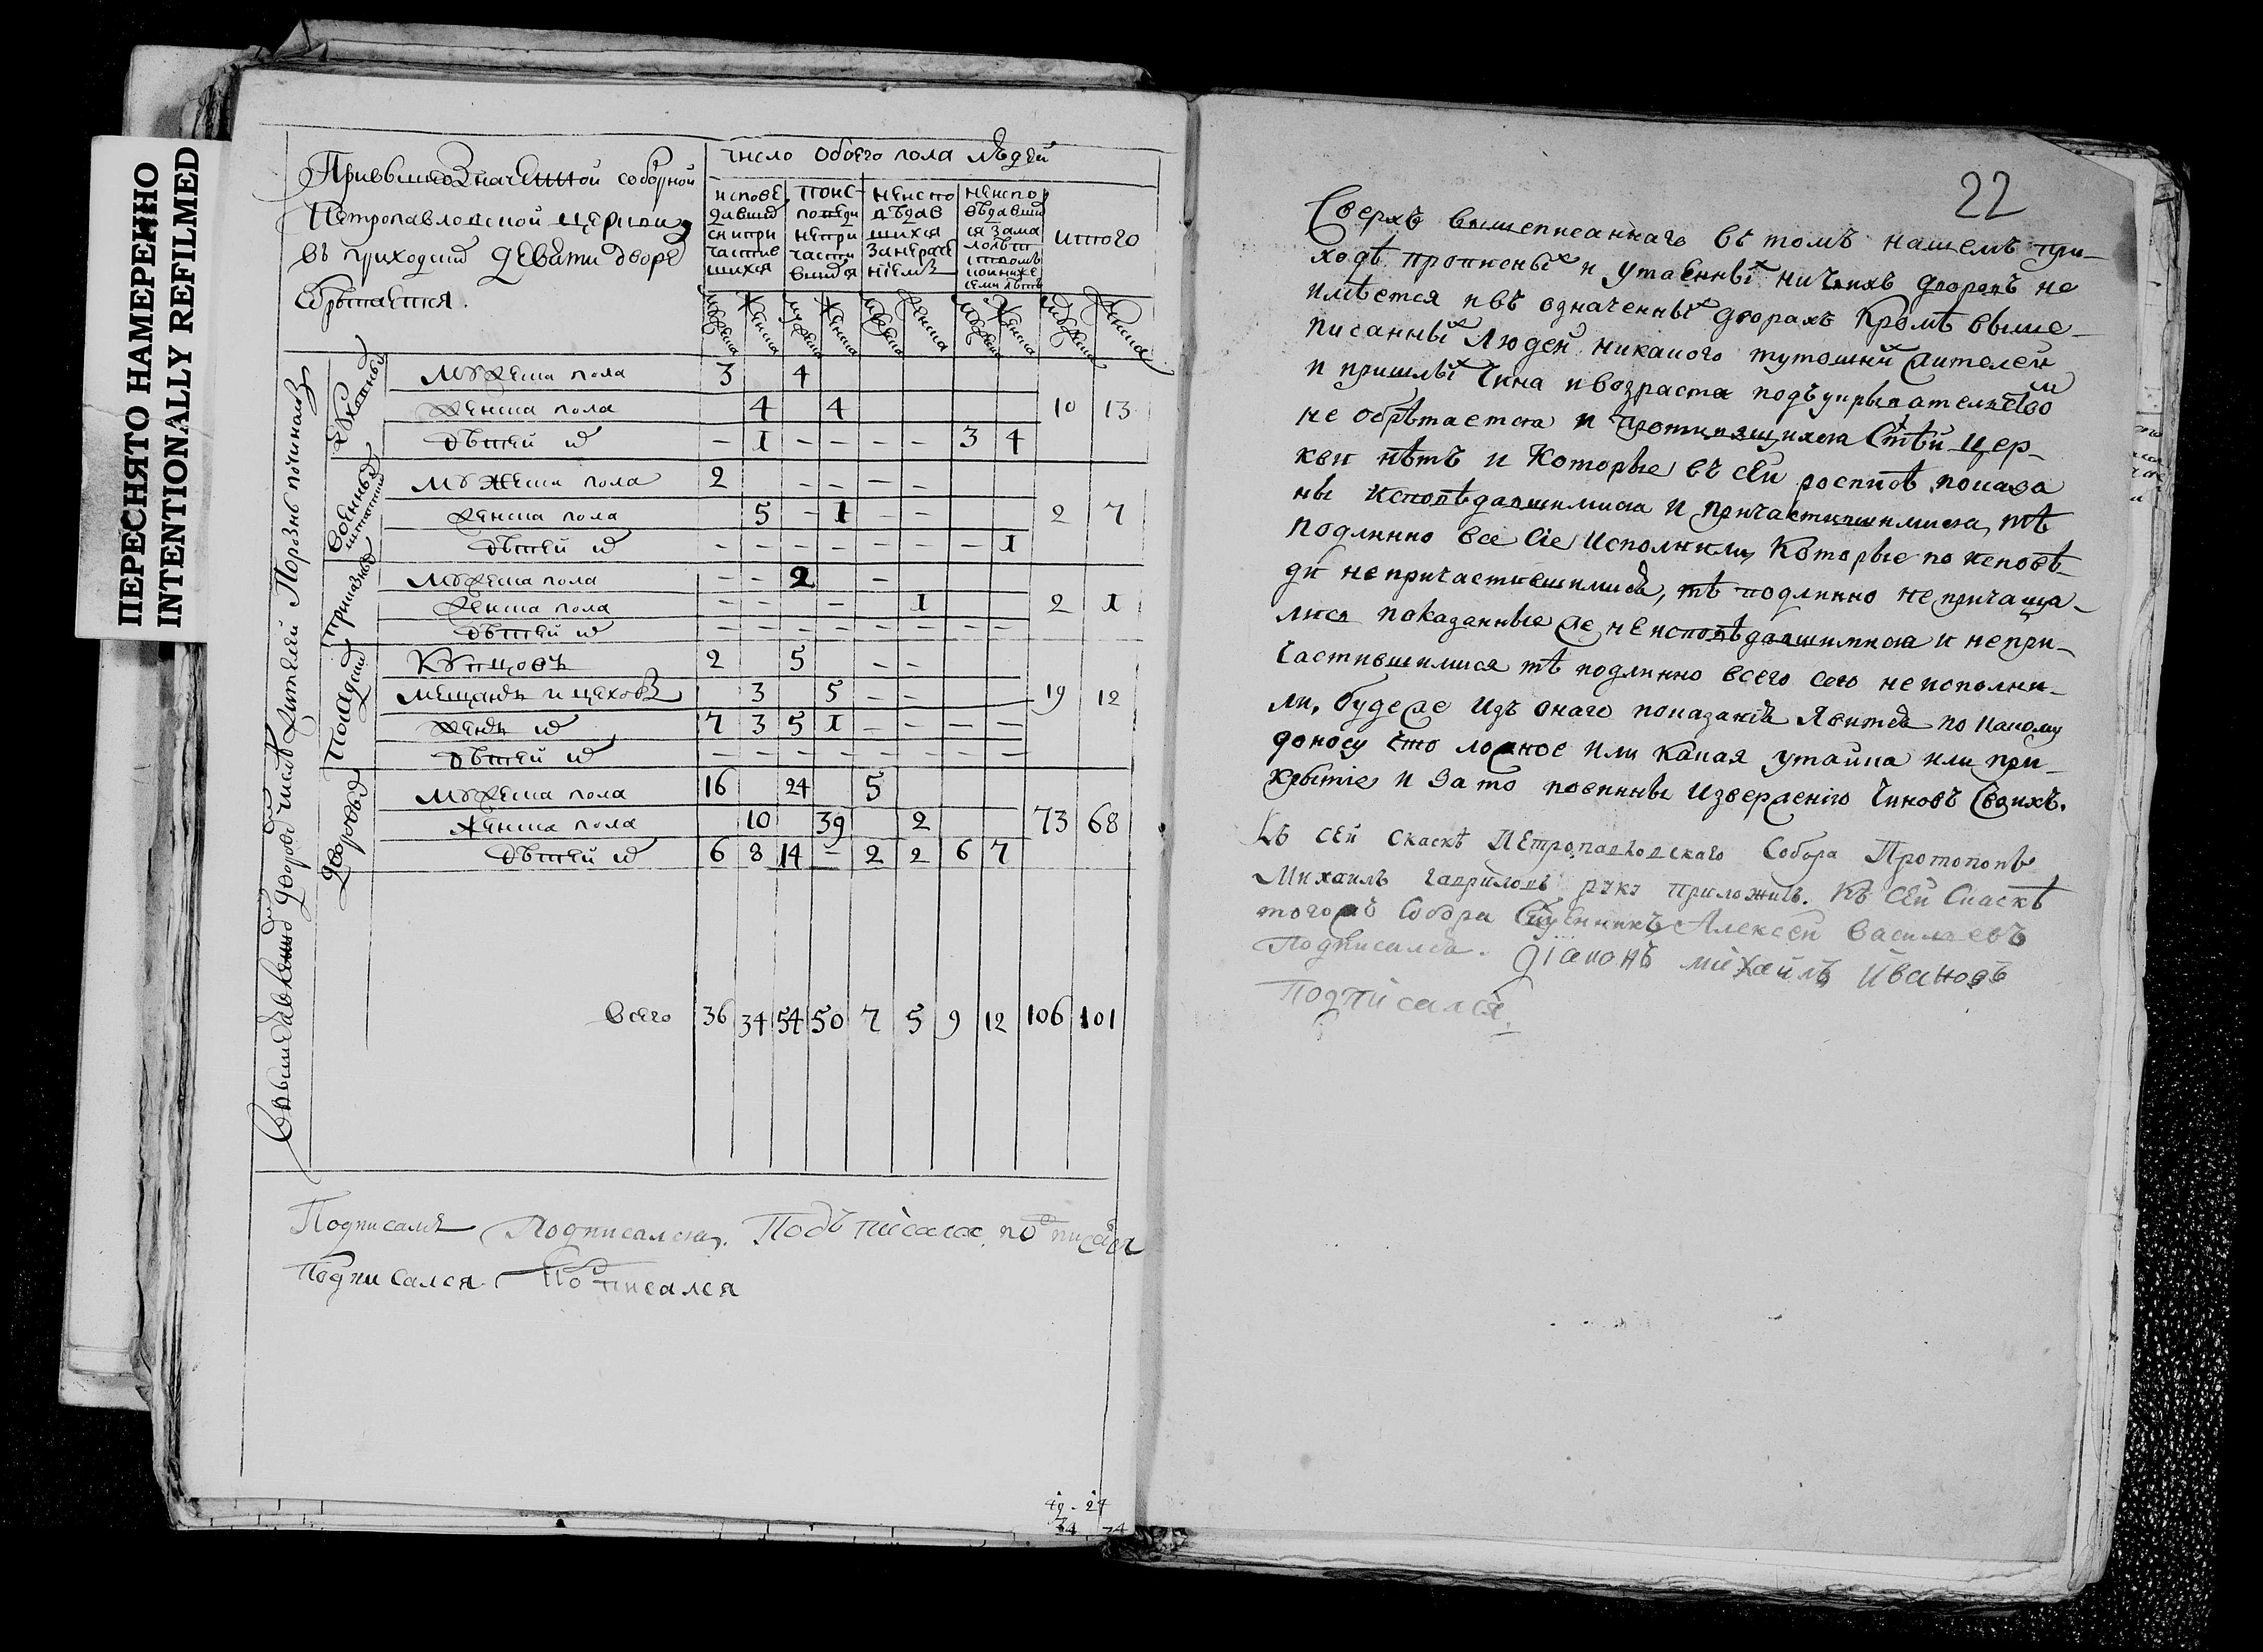 ПЕРЕСНЯТО НАМЕРЕННО
INTENTIONALLY REFILMED
При вышеозначенной соборной
Петропавловской церкви
въ приходѣ девяти дворе
обрѣтается.
число обоего пола людей
исповѣ
давших
ся и при
частив
шихся
по ис
поведи
не при
части
вшихся
не испо
вѣдав
шихся
за нераде
ниемъ
не испо
вѣдавши
ся за ма
лолѣт
ством
итого
мужеска
женска
мужеска
женска
мужеска
женска
мужеска
женска
мужеска
женска
духовных
мужеска пола 3 4
женска пола 4 4 10 13
дѣтей их – 1 – – – – 3 4
военных
мужеска пола 2 – – – –
женска пола 5 – 1 – – 2 7
дѣтей их – – – – – – – 1
приказных
мужеска пола – – 2 –
женска пола – – – 1 2 1
дѣтей их – – – – – – – –
посадских
купцовъ 2 5 – –
мещанъ и цеховъ 3 5 – – 19 12
женъ их 7 3 5 1 – – – –
дѣтей их – – – – – – – –
дворовых
мужеска пола 16 24 5
женска пола 10 39 2 73 68
дѣтей их 6 8 14 – 2 2 6 7
всего 36 34 54 50 7 5 9 12 106 101
Подписался Подписался. Подъписался подписался
Подписался. Подписался
22
Сверхъ вышеписаннаго въ томъ нашемъ при-
ходѣ прописных и утаенных ничьихъ дворовъ не
имѣется и въ означенных дворахъ кромѣ выше-
писанных людей никакого тутошних жителей
и пришлых чина и возраста подъ укрывателством
не обрѣтается и противящихся стѣй цер-
кви нѣтъ и которые въ сей росписѣ показа
ны исповѣдавшимися и причастившимися, тѣ
подлинно все сіе исполнили, которые по исповѣ-
ди не причастившимися, тѣ подлинно не причаща-
лися показанные же не исповѣдавшимися и не при-
частившимися тѣ подлинно всего сего не исполни-
ли, буде же изъ онаго показанія явится по какому
доносу что ложное или какая утайка или при-
крытіе и за то повинны извержению чиновъ своихъ.
Къ сей скаскѣ Петропавловскаго Собора Протопопъ
Михаилъ Гавриловъ руку приложилъ. Къ сей скаскѣ
того жъ Собора Сщенникъ Алексей Васильевъ
Подписался. Діаконъ михайлъ ивановъ
Подписался.